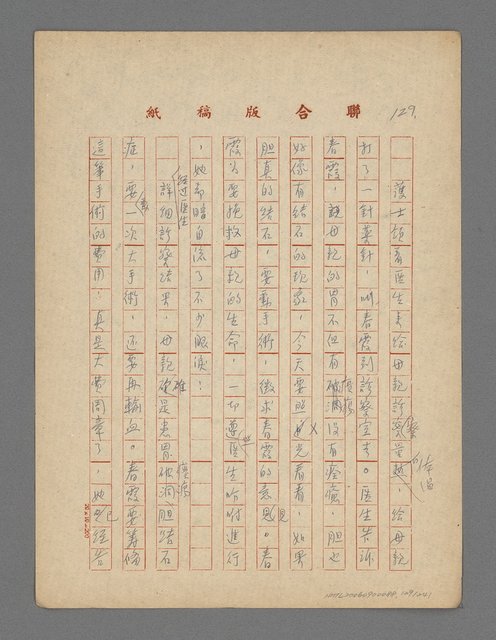 129.
聯合版稿紙
護士領着醫生來給母親診察量過体溫，給母親
打了一針藥針，叫春霞到診察室去。医生告訴
春霞，說母親的胃不但有潰瘍沒有痊癒，胆也
好像有結石的現象，今天要照X光看看，如果
胆真的結石，要動手術，徵求春霞的意見。春
霞為要挽救母親的生命，一切遵医生吩咐進行
，她却暗自流了不少眼淚！
經过医生詳細診察結果，母親確是患胃潰瘍破洞胆結石
症，要一次大手術，還要再輸血。春霞要籌備
這筆手術的費用，真是大費周章了，她已經告
25×12=300